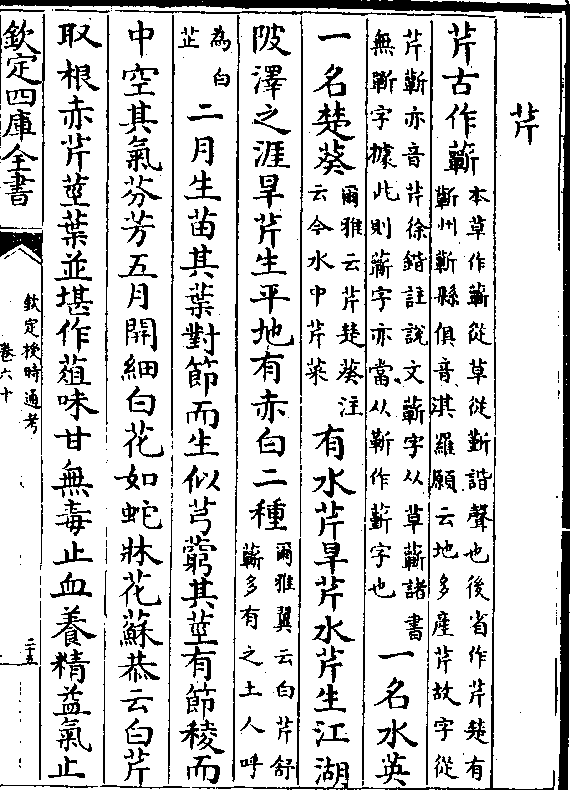 芹
芹古作蘄
本草作蘄從草從靳諧聲也後省作芹楚有
蘄州蘄縣俱音淇羅願云地多產芹故字從
芹蘄亦音芹徐鍇註說文蘄字从草蘄諸書
無蘄字據此則蘄字亦當从靳作蘄字也
一名水英
一名楚葵
爾雅云芹楚葵注
云今水中芹菜
有水芹旱芹水芹生江湖
陂澤之涯旱芹生平地有赤白二種
爾雅翼云白芹舒
蘄多有之土人呼
為白
芷
二月生苗其葉對節而生似芎藭其莖有節稜而
中空其氣芬芳五月開細白花如蛇牀花蘇恭云白芹
取根赤芹莖葉並堪作葅味甘無毒止血養精益氣止
欽定四庫全書
欽定授時通考
卷六十
二十五